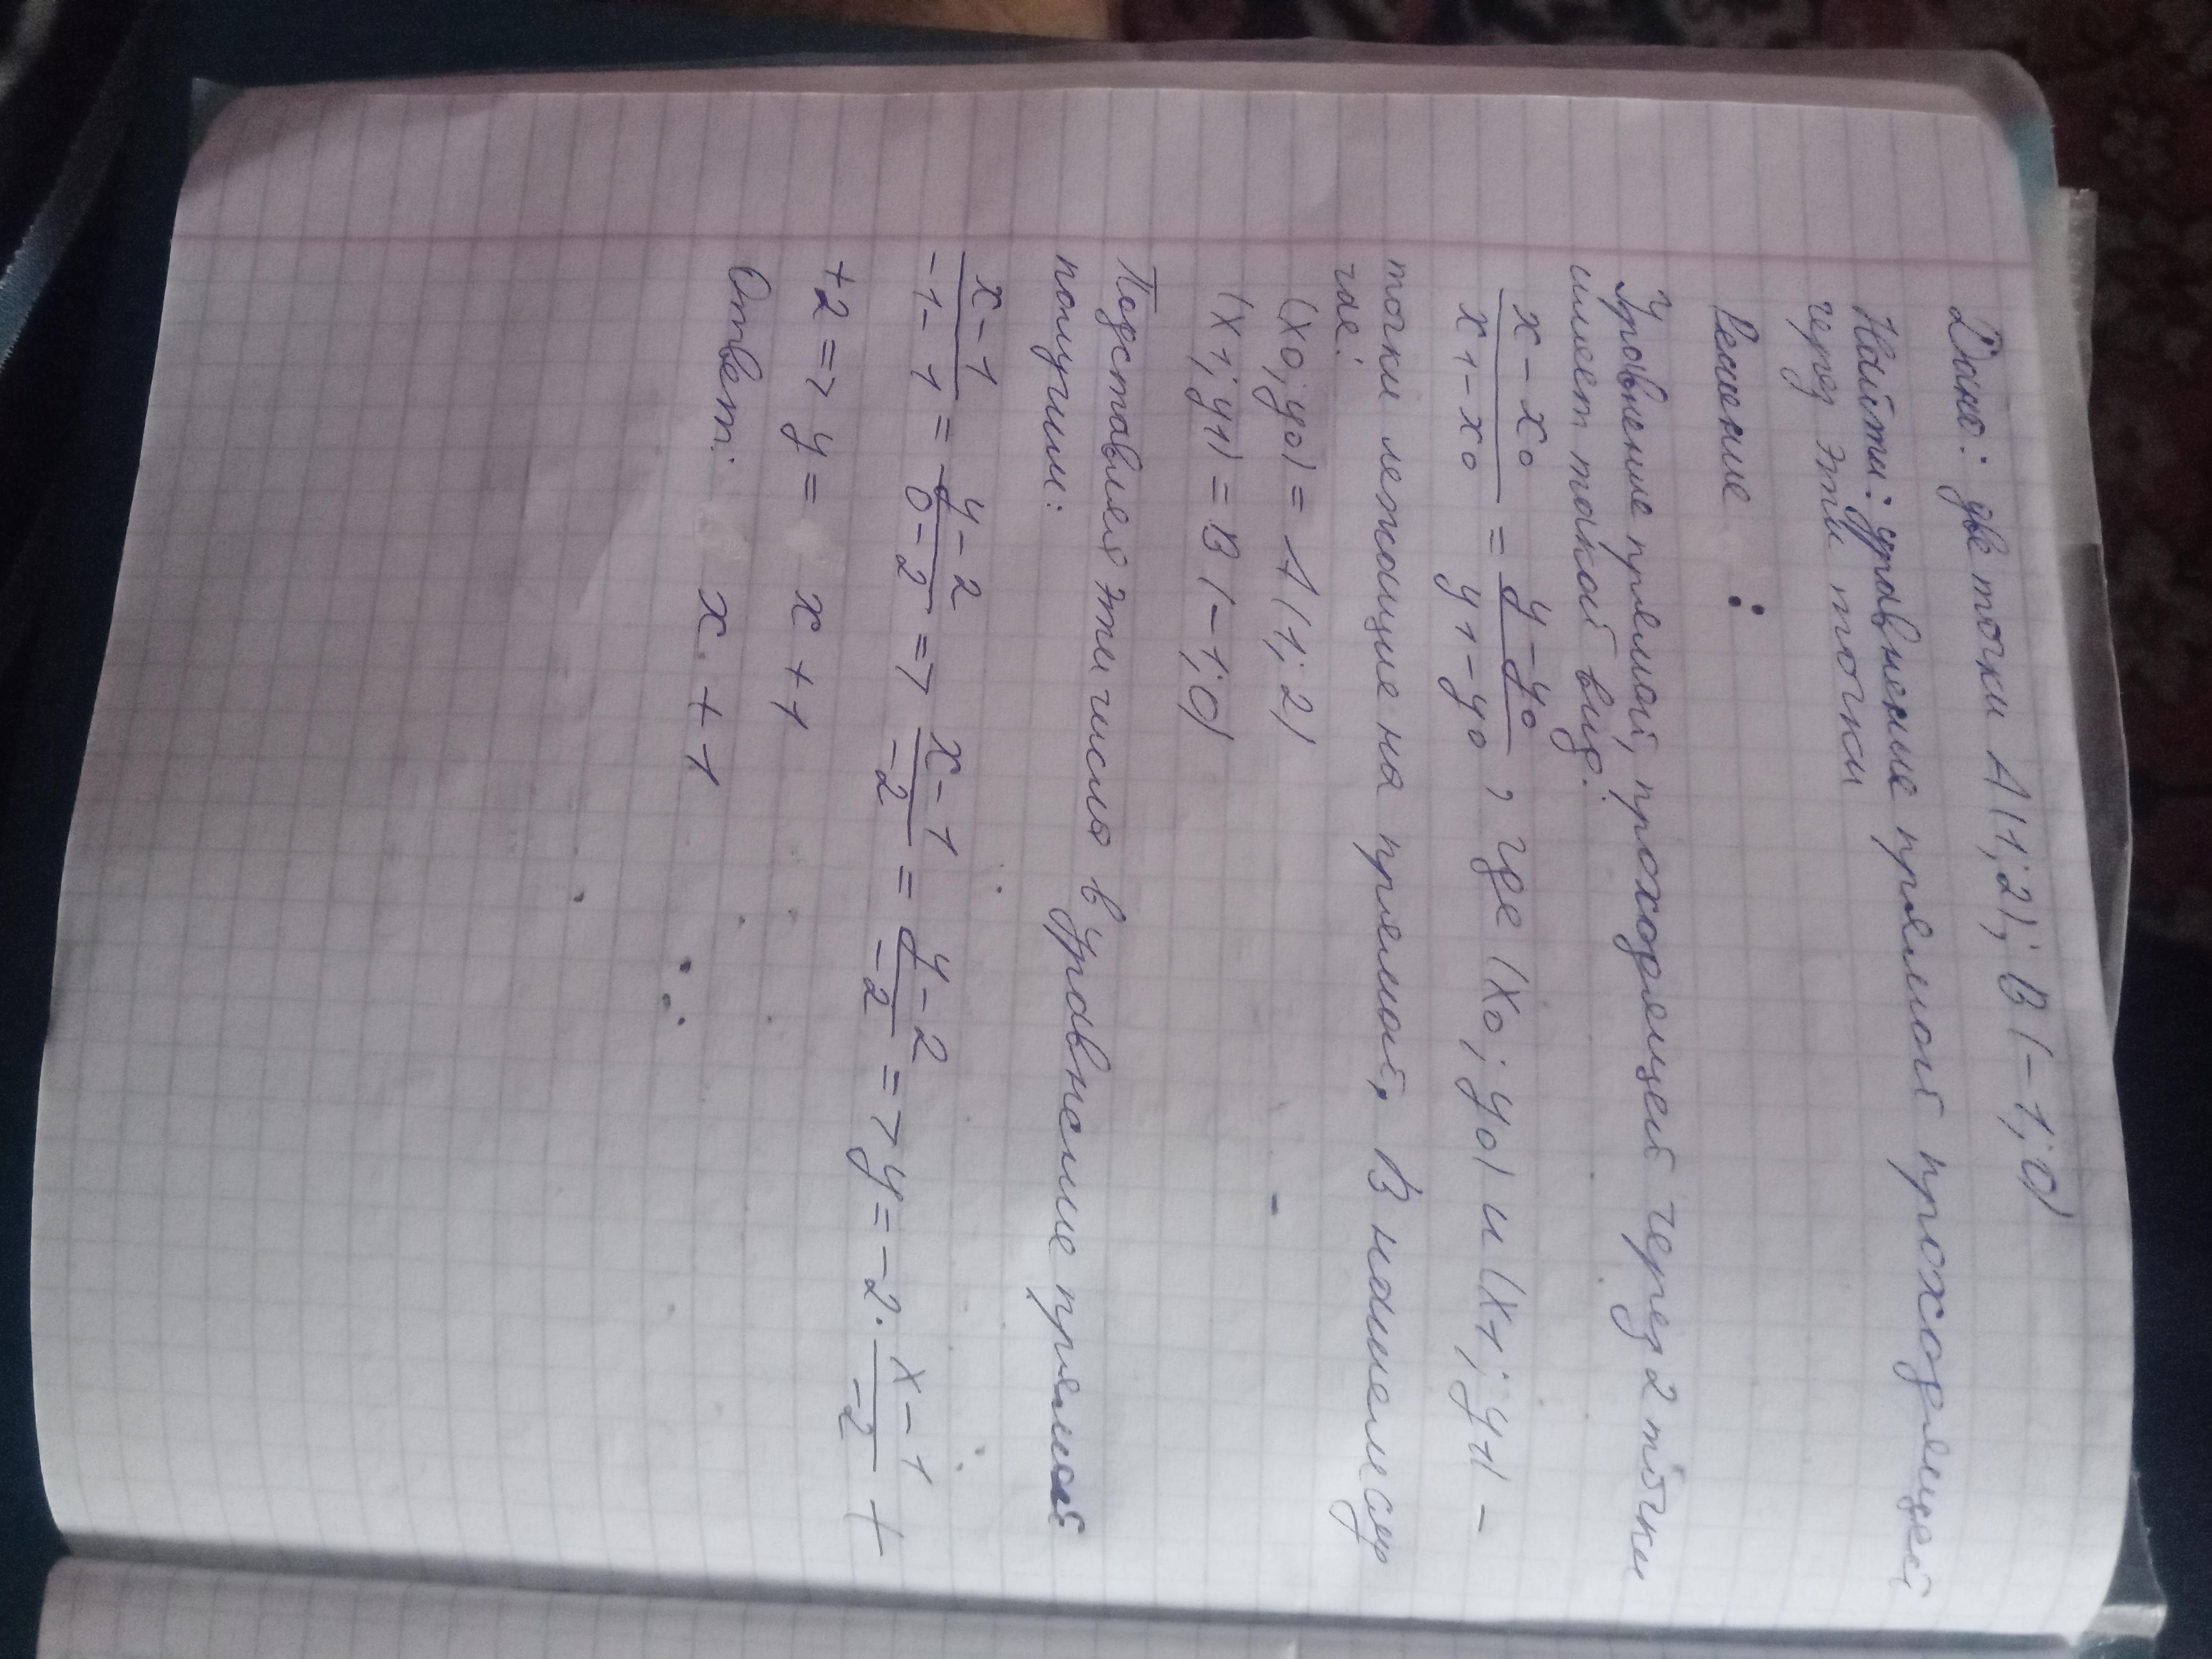 Дано: две точки А(1; 2); В(-1; 0)
Найти: уравнение прямой проходящей
через эти точки
Решение:
Уровнение прямой, проходящей через 2 точки
имеет такой вид:
x - x0 / x1 - x0 = y - y0 / y1 - y0, где (x0; y0) и (x1; y1) -
точки лежащие на прямой. В нашем слу
чае:
(x0; y0) = А(1; 2)
(x1; y1) = В(-1; 0)
Подставляя эти числа в уравнение прямой
получим:
x - 1 / -1 - 1 = y - 2 / 0 - 2 => x - 1 / -2 = y - 2 / -2 => y = -2 · x - 1 / -2 +
+2 => y = x + 1
Ответ: x + 1